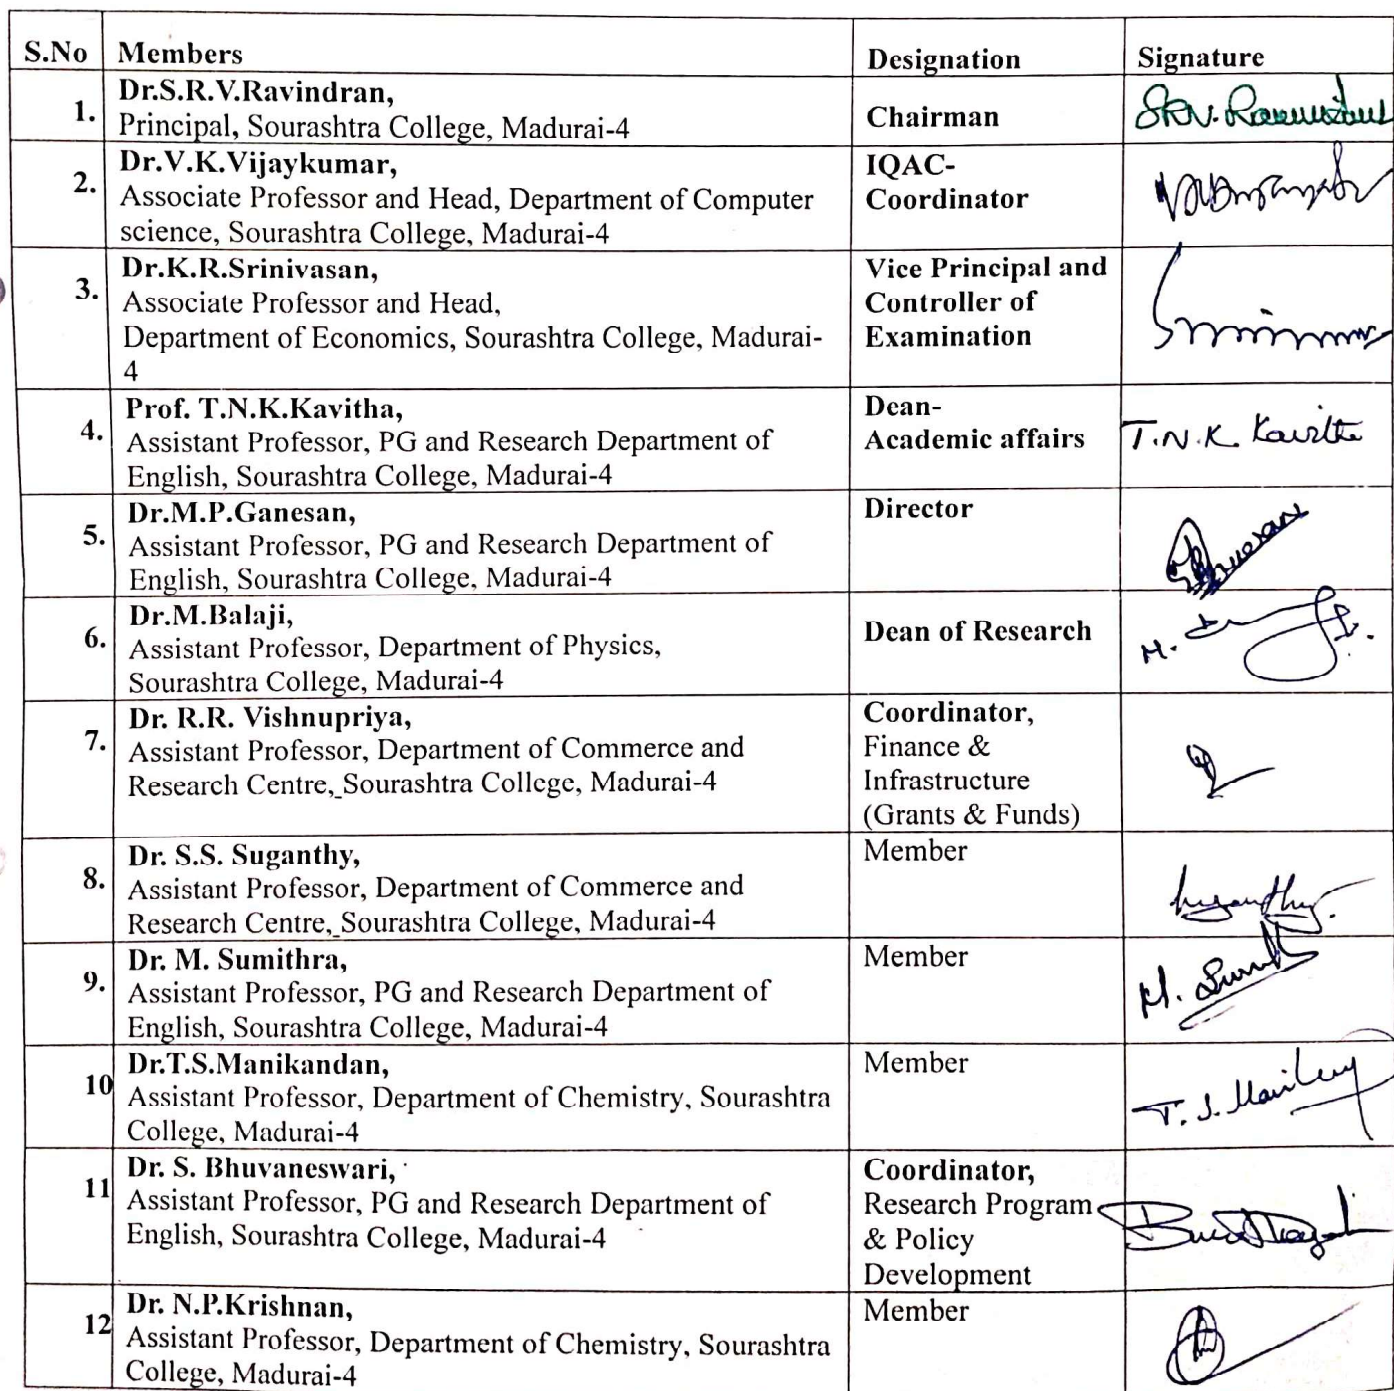 S.No Members Designation Signature
1. Dr.S.R.V.Ravindran,
Principal, Sourashtra College, Madurai-4
Chairman
2. Dr.V.K.Vijaykumar,
Associate Professor and Head, Department of Computer
science, Sourashtra College, Madurai-4
IQAC-
Coordinator
3. Dr.K.R.Srinivasan,
Associate Professor and Head,
Department of Economics, Sourashtra College, Madurai-
4
Vice Principal and
Controller of
Examination
4. Prof. T.N.K.Kavitha,
Assistant Professor, PG and Research Department of
English, Sourashtra College, Madurai-4
Dean-
Academic affairs
T.N.K. Kavitha
5. Dr.M.P.Ganesan,
Assistant Professor, PG and Research Department of
English, Sourashtra College, Madurai-4
Director
6. Dr.M.Balaji,
Assistant Professor, Department of Physics,
Sourashtra College, Madurai-4
Dean of Research
7. Dr. R.R. Vishnupriya,
Assistant Professor, Department of Commerce and
Research Centre, Sourashtra College, Madurai-4
Coordinator,
Finance &
Infrastructure
(Grants & Funds)
8. Dr. S.S. Suganthy,
Assistant Professor, Department of Commerce and
Research Centre, Sourashtra College, Madurai-4
Member
9. Dr. M. Sumithra,
Assistant Professor, PG and Research Department of
English, Sourashtra College, Madurai-4
Member
10 Dr.T.S.Manikandan,
Assistant Professor, Department of Chemistry, Sourashtra
College, Madurai-4
Member
11 Dr. S. Bhuvaneswari,
Assistant Professor, PG and Research Department of
English, Sourashtra College, Madurai-4
Coordinator,
Research Program
& Policy
Development
12 Dr. N.P.Krishnan,
Assistant Professor, Department of Chemistry, Sourashtra
College, Madurai-4
Member